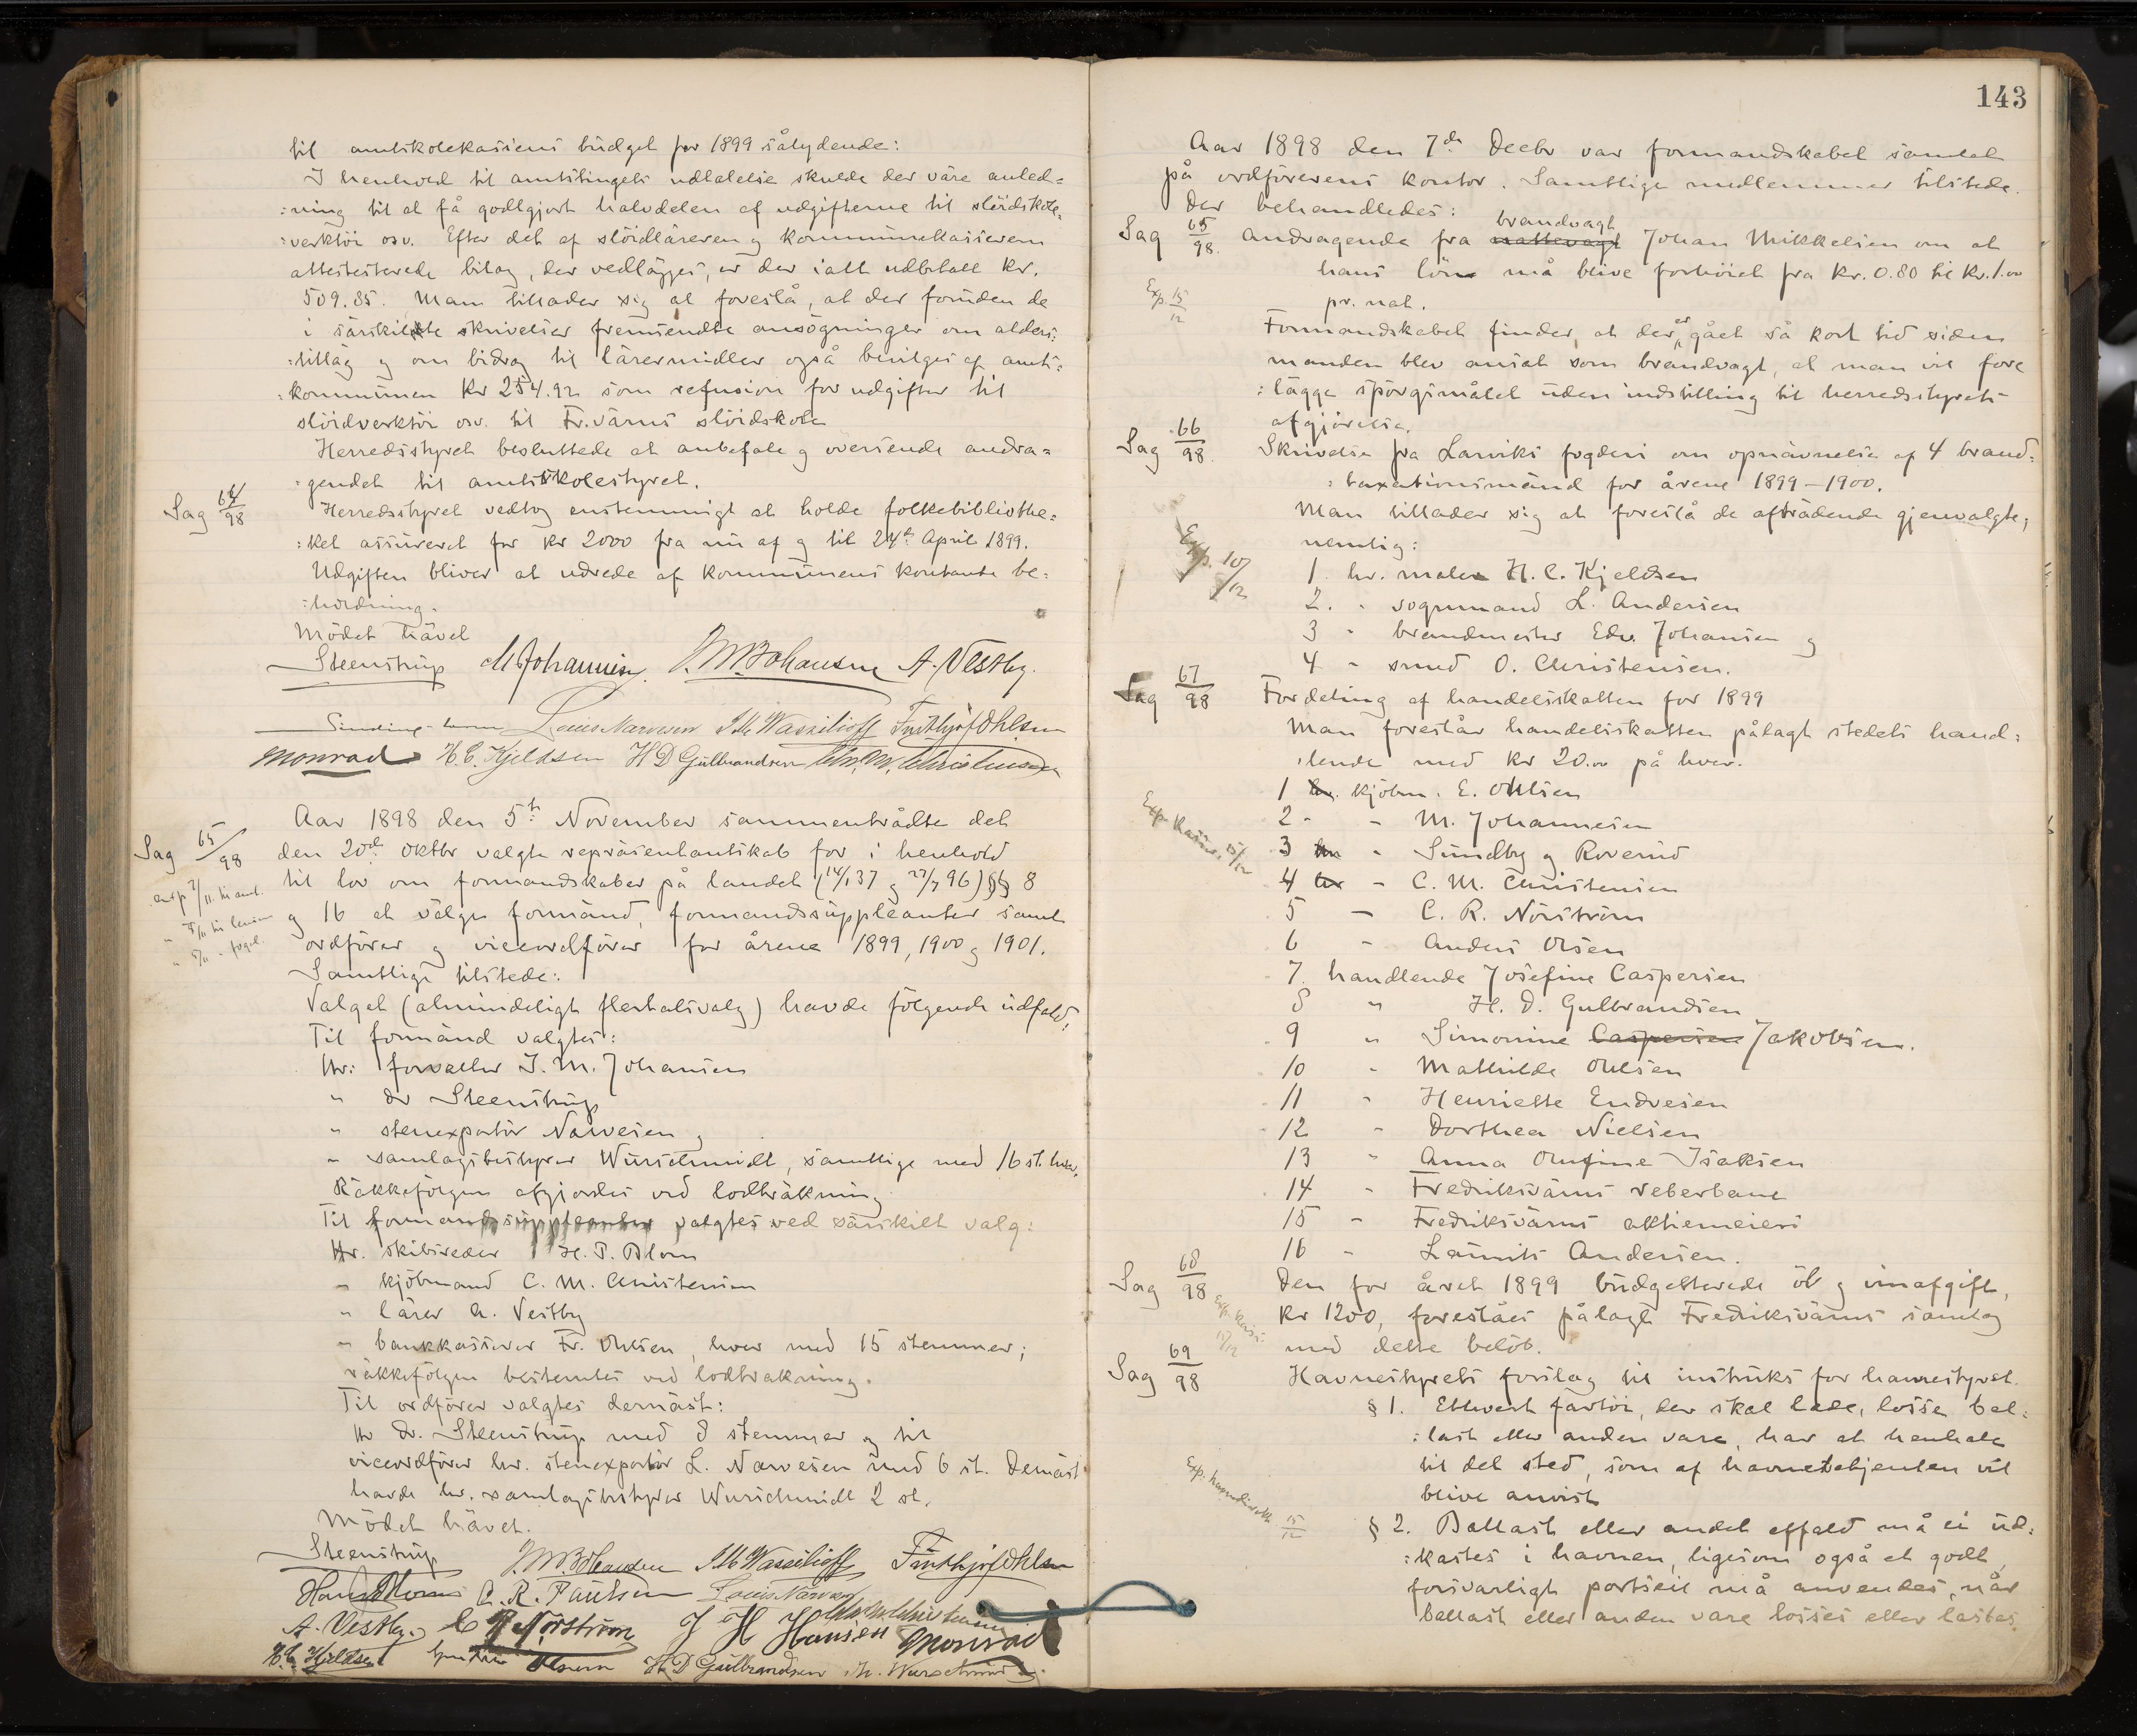 til amtskolekassens budget for 1899 sålydende:
I henhold til amtstingets udtalelse skulde der være anled=
:ning til at få godtgjort halvdelen af udgifterne til slöidskole,
:verktöi osv. Efter det af slöidläreren og kommunekassereren
attesterede bilag, der vedlägges, er der ialt udbetalt kr.
509.85. Man tillader sig at foreslå, at der foruden de
i särskildte skrivelser fremsendte ansögninger om alders:
:tilläg og om bidrag til läremidler også bevilges af amts:
:kommunen kr 254.92 som refusion for udgifter til
slöidverktöi osv. til Fr.värns slöidskole
Herredsstyret besluttede at anbefale og oversende andra=
:gendet til amtsskolestyret.
Sag 64/98 Herredsstyret vedtog enstemmigt at holde folkebibliothe=
:ket assureret for kr 2000 fra nu af og til 24de April 1899.
Udgiften bliver at udrede af kommunens kontante be:
:holdning.
Mödet hävet
Steenstrup M Johannesen. J. M. Johansen A. Vestby.
Louis Narvesen Wassilioff Frithjof Ohlsen
Monrad H. C. Kjeldsen H D Gulbrandsen Chr. M. Christensen
Sag 65/98 Aar 1898 den 5te November sammentrådte det
den 20de Oktbr valgte repräsentantskab for i henhold
til lov om formandskaber på landet (14/1 37 og 27/7 96) §§ 8
og 16 at välge formänd, formandssuppleanter samt
ordförer og viceordförer for årene 1899, 1900 og 1901.
Samtlige tilstede:
Valget (almindeligt flertalsvalg) havde fölgende udfald:
Til formänd valgtes:
Hr: forvalter J. M. Johansen
" dr Steenstrup
" stenexportör Narvesen og
" samlagsbestyrer Wurschmidt, samtlige med 16 st. hver.
Räkkefölgen afgjordes ved lodträkning
Til formandssuppleanter valgtes ved särskilt valg:
Hr. skibsreder H. P. Blom
" kjöbmand C. M. Christensen
" lärer A. Vestby
" bankkasserer Fr. Ohlsen, hver med 15 stemmer;
räkkefölgen bestemtes ved lodträkning.
Til ordförer valgtes dernäst:
Hr Dr. Steenstrup med 8 stemmer og til
viceordförer hr. stenexportör L. Narvesen med 6 st. Dernäst
havde hr. samlagsbestyrer Wurschmidt 2 st.
Mödet hävet.
Steenstrup J. M. Johansen Wassilioff Frithjof Ohlsen
Hans Blom C. R. Paulsen Louis Narvesen
A. Vestby. C R Nörström J H Hansen Chr. M. Christensen Monrad
H. C. Kjeldsen H D Gulbrandsen Wurschmidt
143
Aar 1898 den 7de Decbr var formandskabet samlet
på ordförerens kontor. Samtlige medlemmer tilstede.
Der behandledes:
Sag 65/98. Andragende fra nattevagt brandvagt Johan Mikkelsen om at
hans lön må blive forhöiet fra kr. 0.80 til kr. 1.00
pr. nat.
Exp. 15/12
Formandskabet finder, at der er gået så kort tid siden
manden blev ansat som brandvagt, at man vil fore
:lägge spörgsmålet uden indstilling til herredsstyrets
afgjörelse.
Sag 66/98. Skrivelse fra Larviks fogderi om opnävnelse af 4 brand=
:taxationsmänd for årene 1899-1900.
Man tillader sig at foreslå de afträdende gjenvalgte,
nemlig:
Exp. 10/12
1. hr. maler H. C. Kjeldsen
2. " vognmand L. Andersen
3 " brandmester Edv. Johansen og
4 " smed O. Christensen.
Sag 67/98 Fordeling af handelsskatten for 1899
Man foreslår handelsskatten pålagt stedets hand:
:lende med kr 20.00 på hver.
1 hr. kjöbm. E. Ohlsen
2 " " M. Johannesen
3 hr " Sundby og Roverud
4 hr " C. M. Christensen
5 " C. R. Nörström
6 " Anders Olsen
7. handlende Josefine Caspersen
8 " H. D. Gulbrandsen
9 " Simonine Caspersen Jakobsen.
10 " Mathilde Ohlsen
11 " Henriette Endresen
12 " Dorthea Nielsen
13 " Anna Olufine Isaksen
14 " Fredriksvärns reberbane
15 " Fredriksvärns aktiemeieri
16 " Laurits Andersen.
Sag 68/98 Den for året 1899 budgetterede öl og vinafgift,
kr 1200, foreslåes pålagt Fredriksvärns samlag
med dette belöb.
Sag 69/98 Havnestyrets forslag til instruks for havnestyret.
§ 1. Ethvert fartöi, der skal lade, losse bal:
:last eller anden vare, har at henhale
til det sted, som af havnebetjenten vil
blive anvist
Exp. havnedirekt. 15/12
§ 2. Ballast eller andet affald må ei ud:
:kastes i havnen, ligesom også et godt,
forsvarligt portseil må anvendes, når
ballast eller anden vare losses eller lastes.